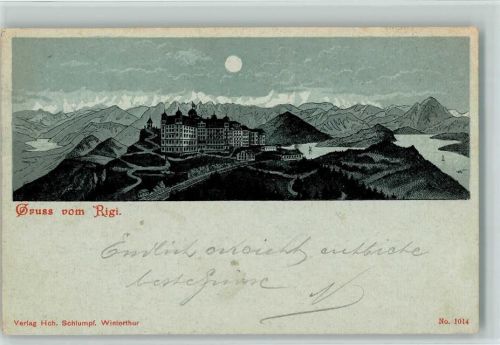 Gruss vom Rigi.
Endlich erreicht entbiete
beste Grüsse
Verlag Hch. Schlumpf. Winterthur
No. 1014